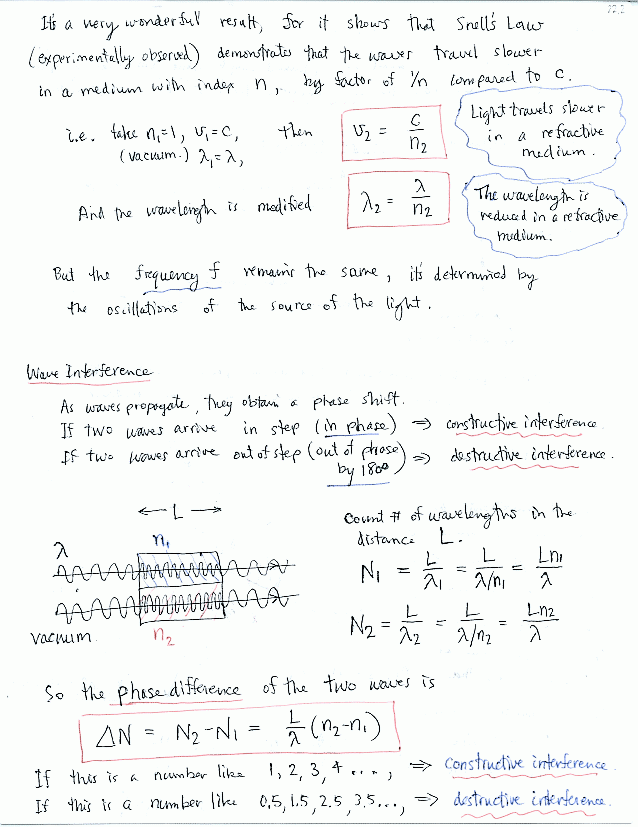 It's a very wonderful result, for it shows that Snell's Law
(experimentally observed) demonstrates that the waves travel slower
in a medium with index n, by factor of 1/n compared to c.
i.e. take n₁=1, v₁=c, then v₂ = c/n₂
(vacuum.) λ₁=λ,
Light travels slower
in a refractive
medium.
And the wavelength is modified λ₂ = λ/n₂
The wavelength is
reduced in a refractive
medium.
But the frequency f remains the same, it's determined by
the oscillations of the source of the light.
Wave Interference
As waves propogate, they obtain a phase shift.
If two waves arrive in step (in phase) ⇒ constructive interference
If two waves arrive out of step (out of phase) ⇒ destructive interference.
by 180°
← L →
n₁
λ
vacuum n₂
Count # of wavelengths in the
distance L.
N₁ = L/λ₁ = L/λ/n₁ = Ln₁/λ
N₂ = L/λ₂ = L/λ/n₂ = Ln₂/λ
So the phase difference of the two waves is
ΔN = N₂-N₁ = L/λ (n₂-n₁)
If this is a number like 1, 2, 3, 4 ...., ⇒ constructive interference.
If this is a number like 0.5, 1.5, 2.5, 3.5..., ⇒ destructive interference.